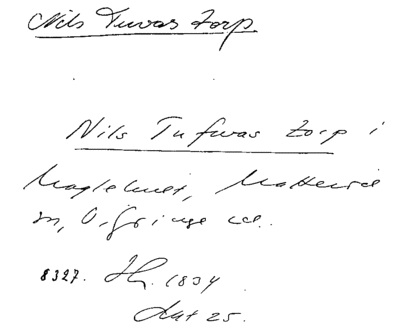 Nils Tuvas torp
Nils Tufwas torp i
Maglehult,
sn, V. Göinge hd.
8327. Jr. 1834
Lat 25.